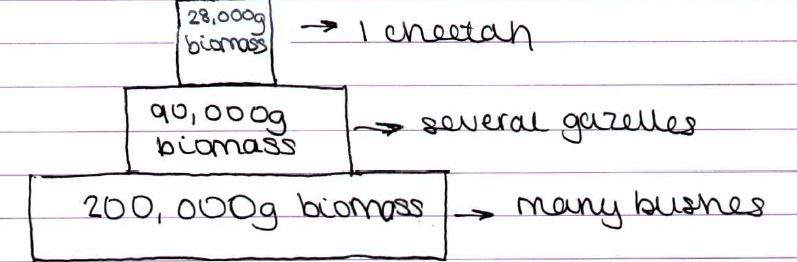 28,000g
biomass → 1 cheetah
90,000g
biomass → several gazelles
200,000g biomass → many bushes